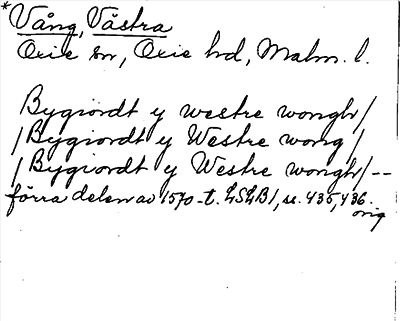 *Vång, Västra
Oxie sn, Oxie hd, Malm. l.
Bygiordt y westre wongh/
/Bygiordt y Westre wong/
/Bygiordt y Westre wongh/--
förra delen av 1570-t. LSLB1, s. 435, 436.
orig